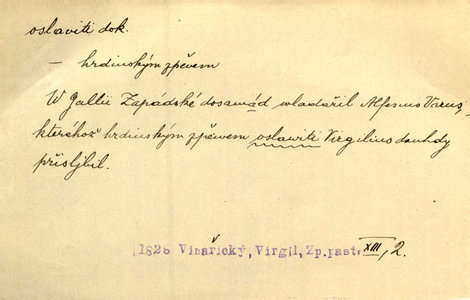 oslaviti dok.
— hrdinským zpěvem
W Gallii Zapádské dosawád wladařil Alfenus Varus,
kteréhož hrdinským zpěwem oslawiti Virgilius dauhdy
přisljbil.
1828 Vinařický, Virgil, Zp.past. XIII, 2.